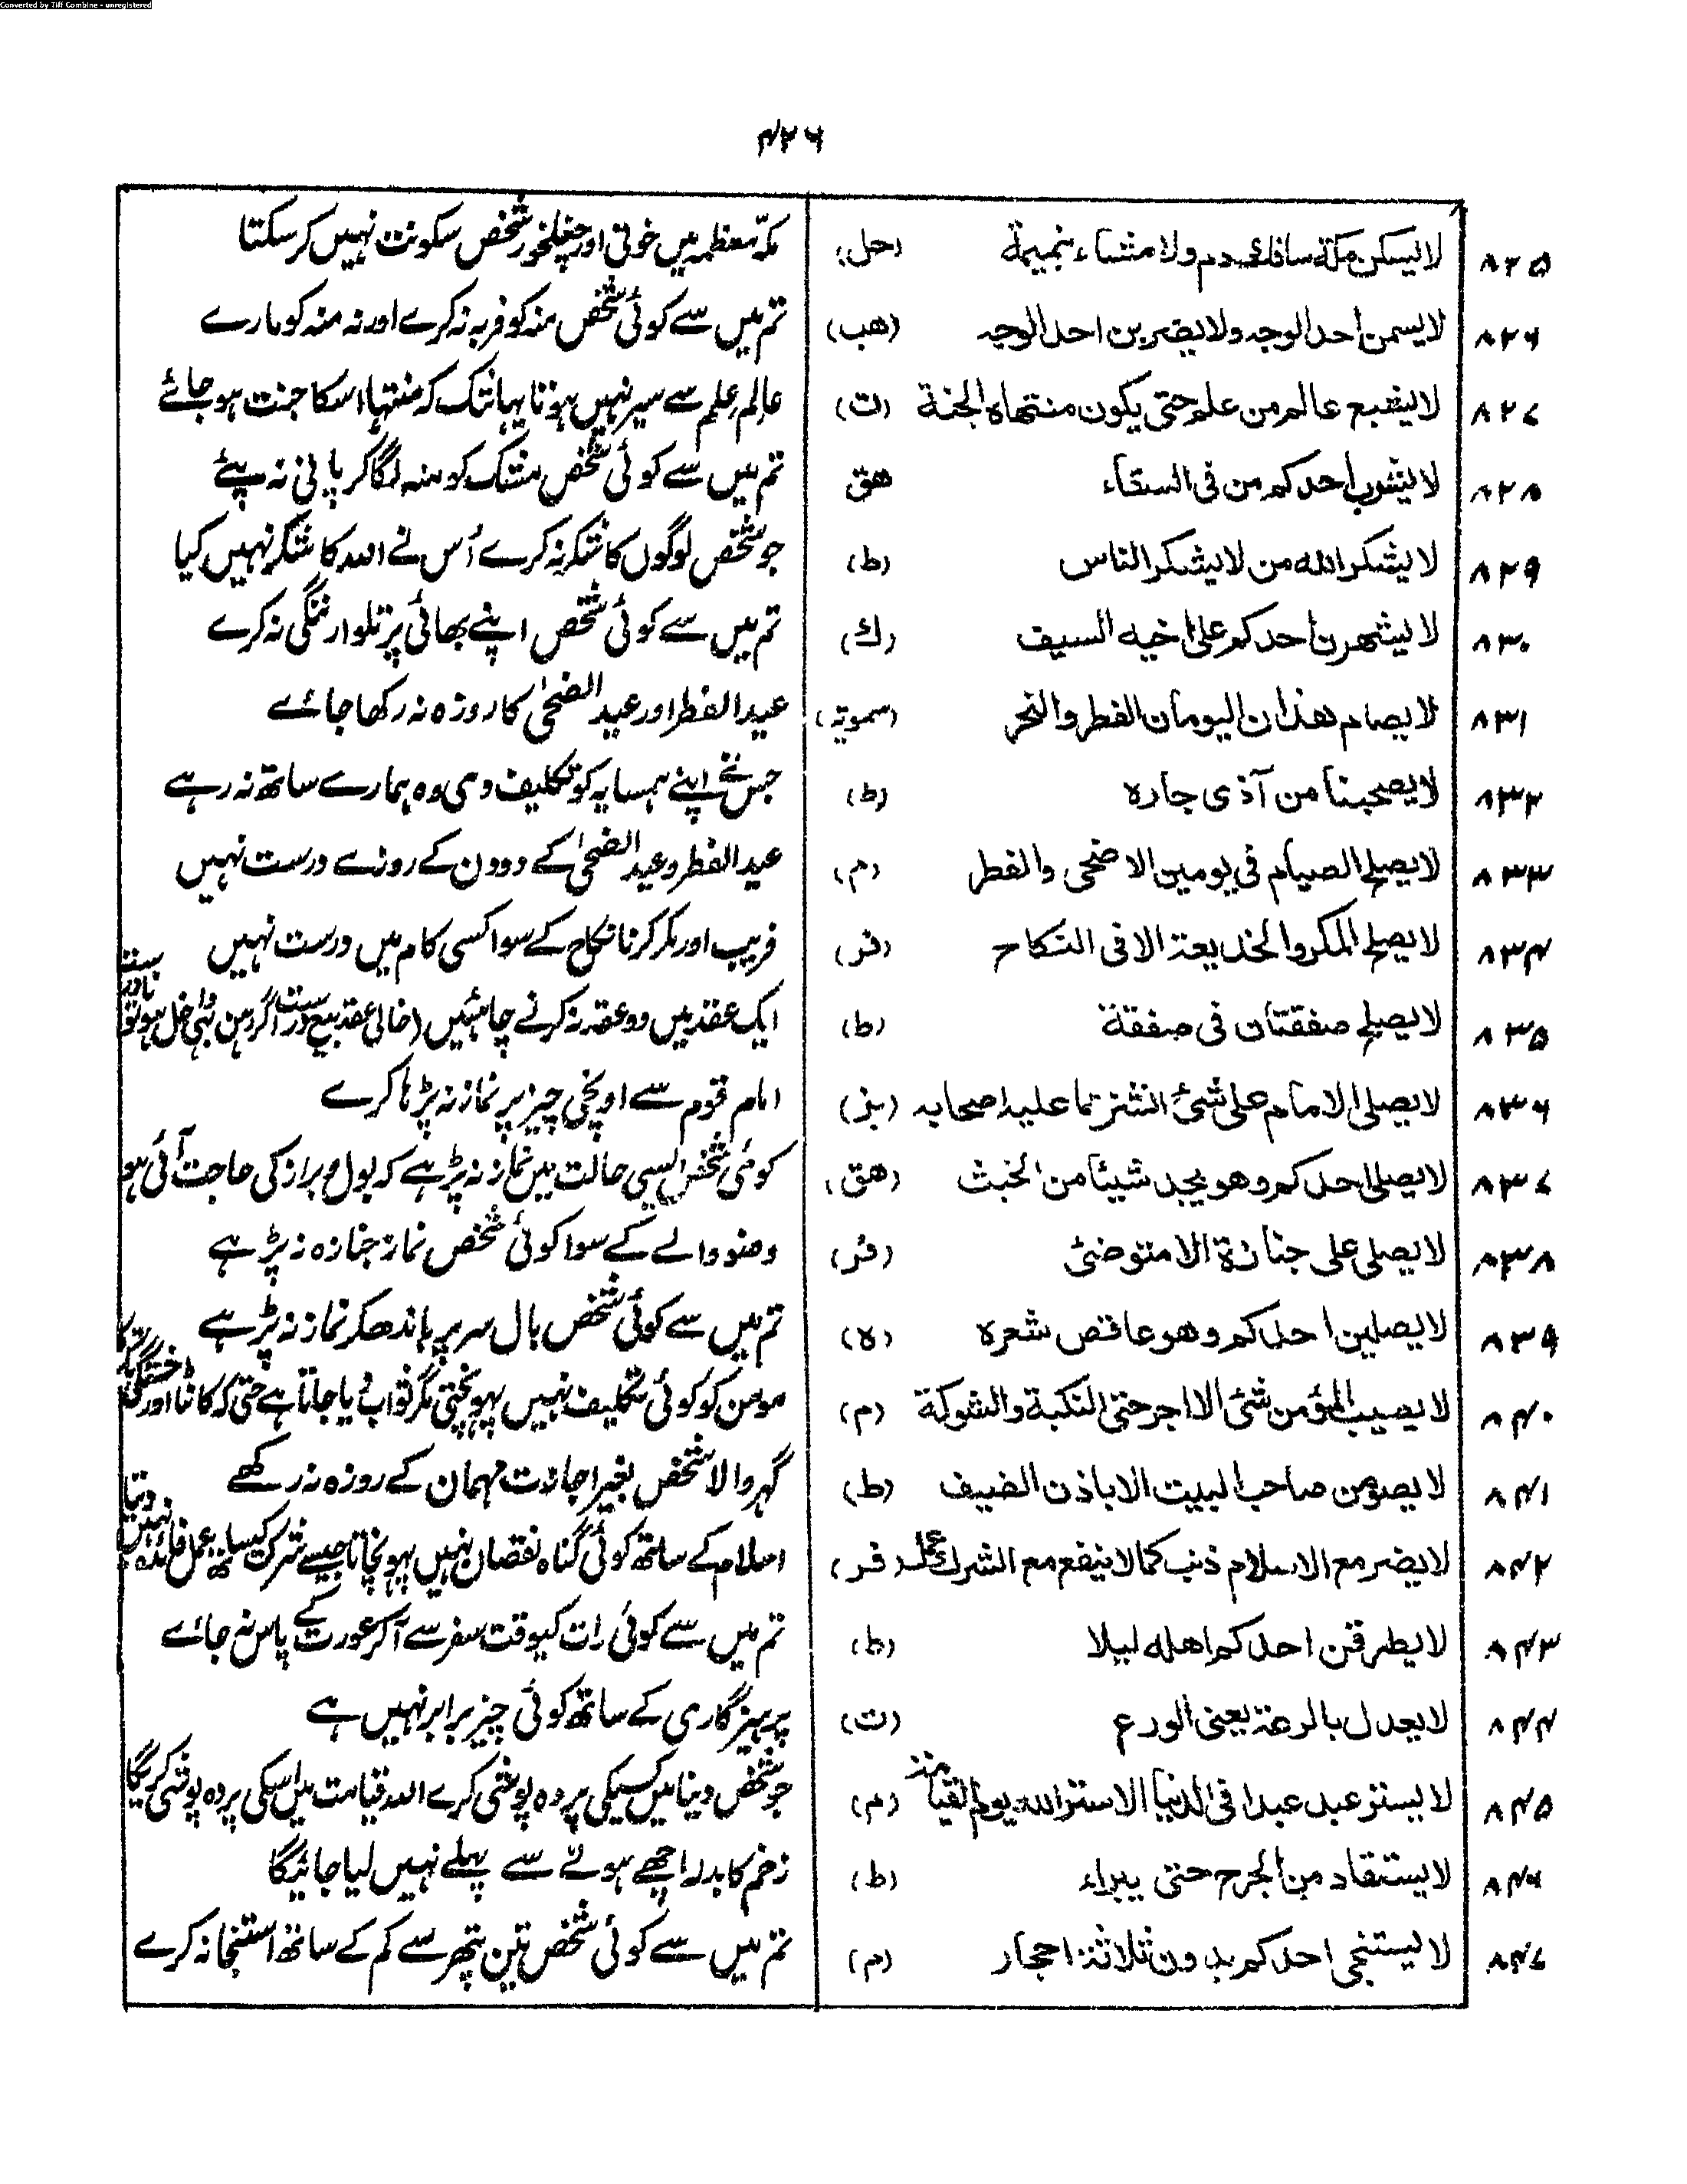 Converted by Tiff Combine - unregistered
۴۲۶
۸۲۵ لا یسکن مکة سافك دم ولا مشاء بنمیمة (حل) مکہ معظمہ میں خونی اور چغلخور شخص سکونت نہیں کر سکتا
۸۲۶ لا یسمن احد الوجہ ولا یضربن احد الوجہ (ھب) تم میں سے کوئی شخص منہ کو فربہ نہ کرے اور نہ منہ کو مارے
۸۲۷ لا یشبع عالم من علم حتی یکون منتھاہ الجنة (ت) عالم علم سے سیر نہیں ہوتا یہانتک کہ منتہا اسکا جنت ہو جائے
۸۲۸ لا یشرب احدکم من فی السقاء ھق تم میں سے کوئی شخص مشک کو منہ لگا کر پانی نہ پیئے
۸۲۹ لا یشکر الله من لا یشکر الناس (ط) جو شخص لوگوں کا شکر نہ کرے اُس نے اللہ کا شکر نہیں کیا
۸۳۰ لا یشھرن احدکم علی اخیه السیف (ك) تم میں سے کوئی شخص اپنے بھائی پر تلوار ننگی نہ کرے
۸۳۱ لا یصام ھذان الیومان الفطر والنحر (سمویہ) عید الفطر اور عید الضحیٰ کا روزہ نہ رکھا جائے
۸۳۲ لا یصحبنا من آذی جارہ (ط) جس نے اپنے ہمسایہ کو تکلیف دی وہ ہمارے ساتھ نہ رہے
۸۳۳ لا یصلح الصیام فی یومین الاضحی والفطر (م) عید الفطر و عید الضحیٰ کے دو دن کے روزے درست نہیں
۸۳۴ لا یصلح المکر والخدیعة الا فی النکاح (فر) فریب اور مکر کرنا نکاح کے سوا کسی کام میں درست نہیں
۸۳۵ لا یصلح صفقتان فی صفقة (ط) ایک عقد میں دو عقد نہ کرنے چاہئیں (خالی عقد بیع درست اگر رہن بھی داخل ہو تو
۸۳۶ لا یصلی الامام علی شئ انشز مما علیہ اصحابہ (بز) امام قوم سے اونچی چیز پر نماز نہ پڑہا کرے
۸۳۷ لا یصلی احدکم وھو یجد شیئا من الخبث (ھق) کوئی شخص ایسی حالت میں نماز نہ پڑہے کہ بول و براز کی حاجت آئی ہو
۸۳۸ لا یصلی علی جنازة الا متوضئ (فر) وضو والے کے سوا کوئی شخص نماز جنازہ نہ پڑہے
۸۳۹ لا یصلین احدکم وھو عاقص شعرہ (ہ) تم میں سے کوئی شخص بال سر پر باندھکر نماز نہ پڑہے
۸۴۰ لا یصیب المؤمن شئ الا اجر حتی النکبة والشوکة (م) مومن کو کوئی تکلیف نہیں پہونچتی مگر ثواب پایا جاتا ہے حتی کہ کانٹا اور
۸۴۱ لا یصومن صاحب البیت الا باذن الضیف (ط) گہر والا شخص بغیر اجازت مہمان کے روزہ نہ رکھے
۸۴۲ لا یضر مع الاسلام ذنب کما لا ینفع مع الشرك عمل (فر) اسلام کے ساتھ کوئی گناہ نقصان نہیں پہونچاتا جیسے شرک کیساتھ عمل فائدہ نہیں دیتا
۸۴۳ لا یطرقن احدکم اھله لیلا (ط) تم میں سے کوئی رات کیوقت سفر سے آکر عورت کے پاس نہ جائے
۸۴۴ لا یعدل بالرعة یعنی الورع (ت) پرہیزگاری کے ساتھ کوئی چیز برابر نہیں ہے
۸۴۵ لا یستر عبد عبدا فی الدنیا الا ستر الله یوم القیامة (م) جو شخص دینا میں کسیکی پردہ پوشی کرے اللہ قیامت میں اسکی پردہ پوشی کریگا
۸۴۶ لا یستقاد من الجرح حتی یبراء (ط) زخم کا بدلہ اچھے ہونے سے پہلے نہیں لیا جائیگا
۸۴۷ لا یستنجی احدکم بدون ثلاثة احجار (م) تم میں سے کوئی شخص تین پتھر سے کم کے ساتھ استنجا نہ کرے